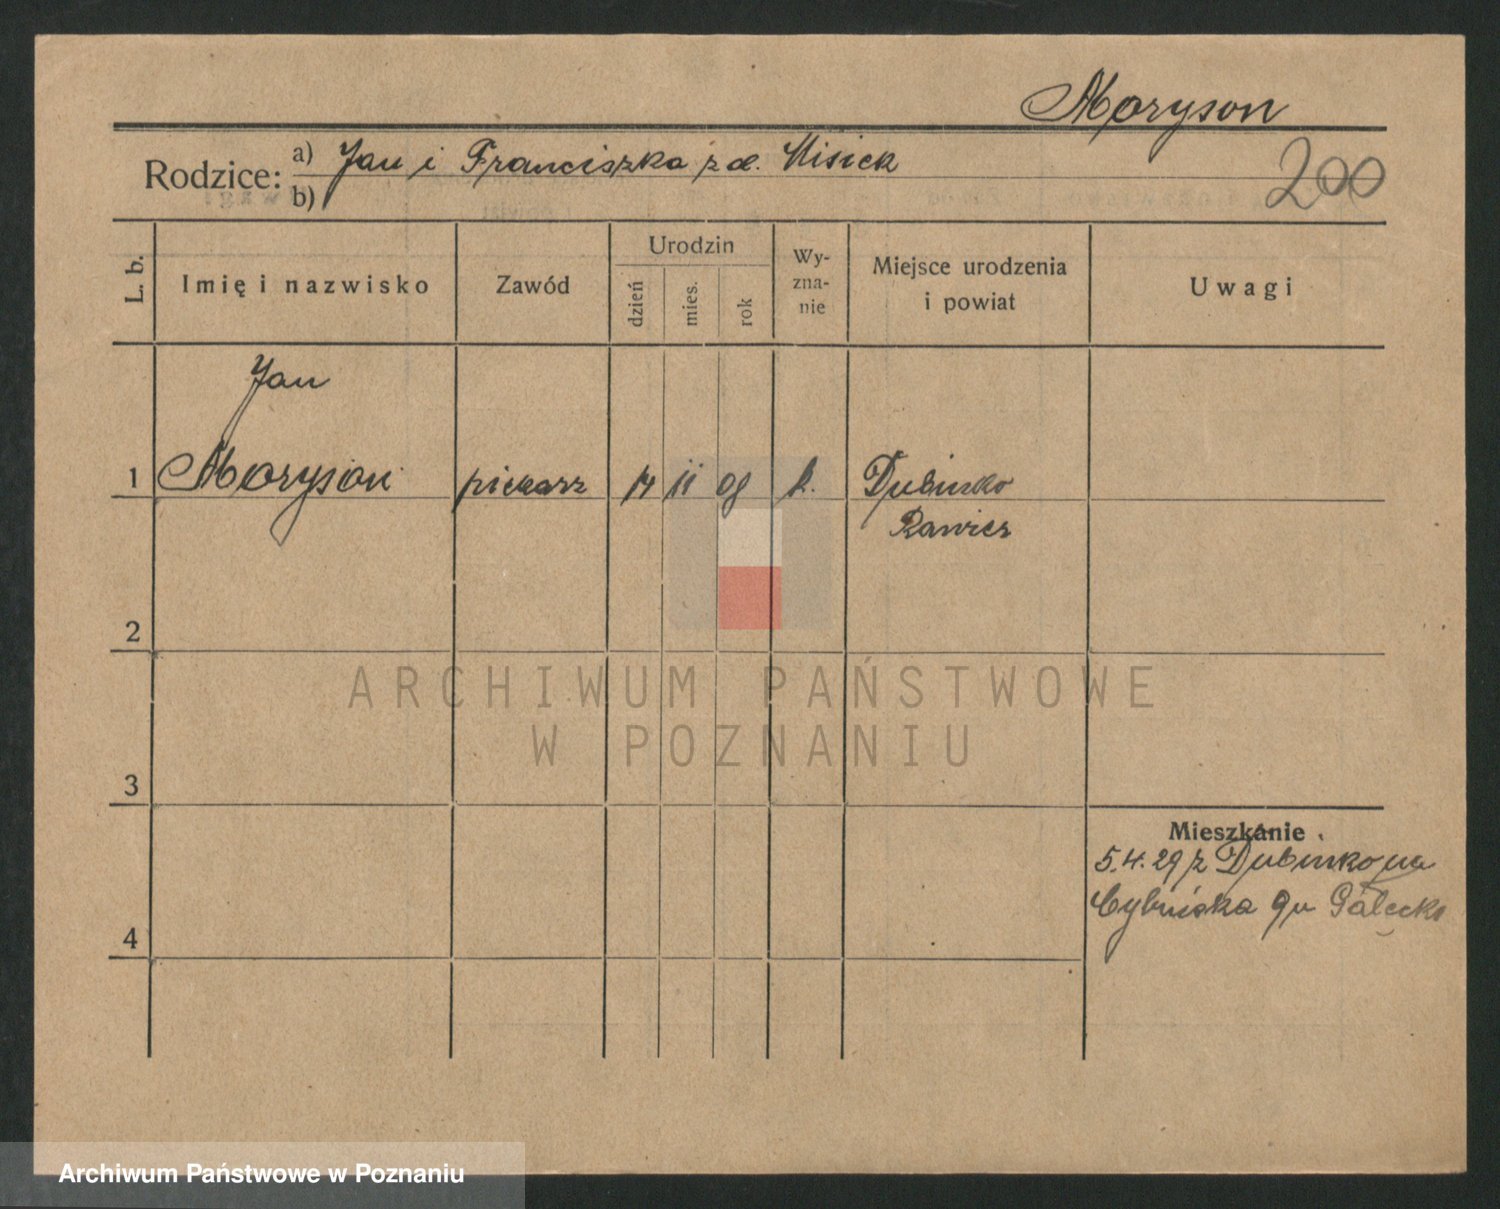 Moryson
Rodzice: a) Jan i Franciszka z d. Misiek
b)
200
L. b.
Imię i nazwisko
Zawód
Urodzin
dzień
mies.
rok
Wy-
zna-
nie
Miejsce urodzenia
i powiat
Uwagi
Jan
1 Moryson piekarz 14 11 08 k. Dubinko
Rawicz
2
3
4
Mieszkanie
5.4.29 z Dubinko na
Cybińska 9 u
ARCHIWUM PAŃSTWOWE
W POZNANIU
Archiwum Państwowe w Poznaniu